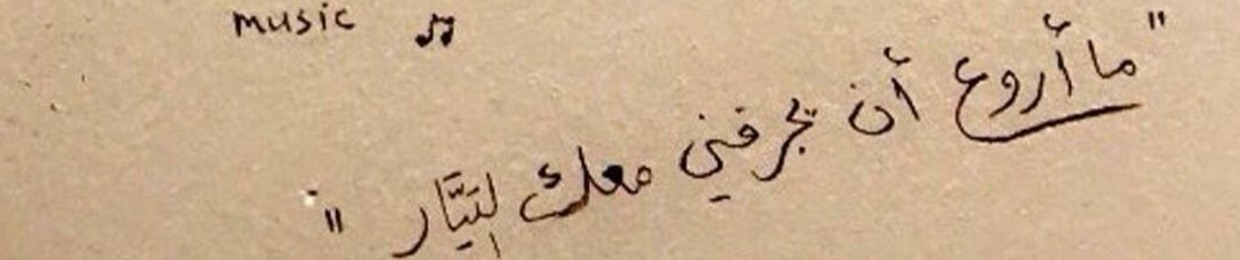 music ♫
"ما أروع أن يجرفني معك التيَّار"